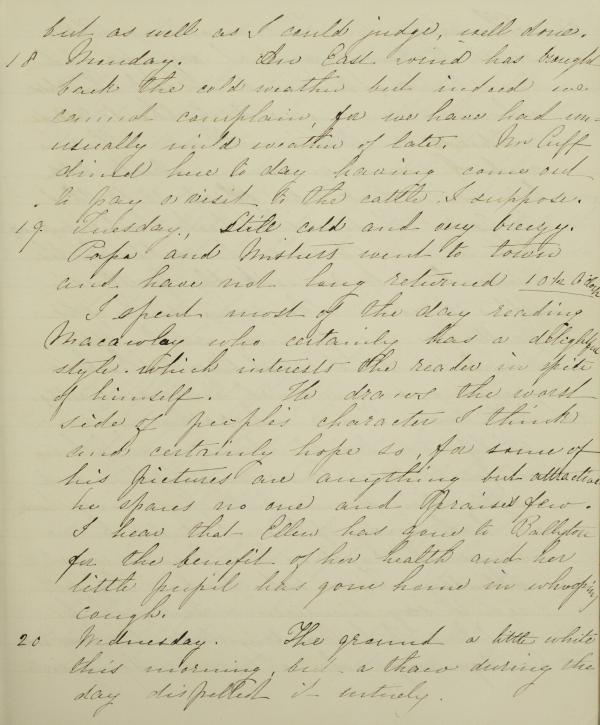 but as well as I could judge, well done.
18 Monday. An East wind has brought
back the cold weather but indeed we
cannot complain, for we have had un-
usually mild weather of late. Mr Cuff
dined here to day having come out
to pay a visit to the cattle I suppose.
19 Tuesday., Still cold and very breezy.
Papa and Mistress went to town
and have not long returned 10½ O'Clock
I spent most of the day reading
Macawlay who certainly has a delightful
style. which interests the reader in spite
of himself. He draws the worst
side of people's character I think
and certainly hope so, for some of
his pictures are anything but attractive
he spares no one and praises few.
I hear that Ellen has gone to
for the benefit of her health and her
little pupil has gone home in whooping
cough.
20 Wednesday. The ground a little white
this morning, but a thaw during the
day dispelled it entirely.